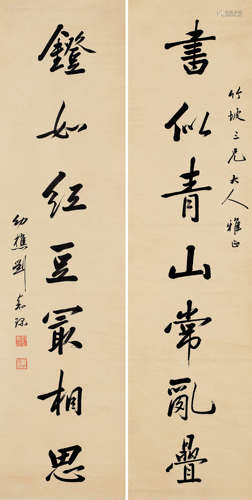 竹坡三兄大人雅正
書似青山常亂疊
鐙如紅豆冣相思
幼樵劉嘉琛